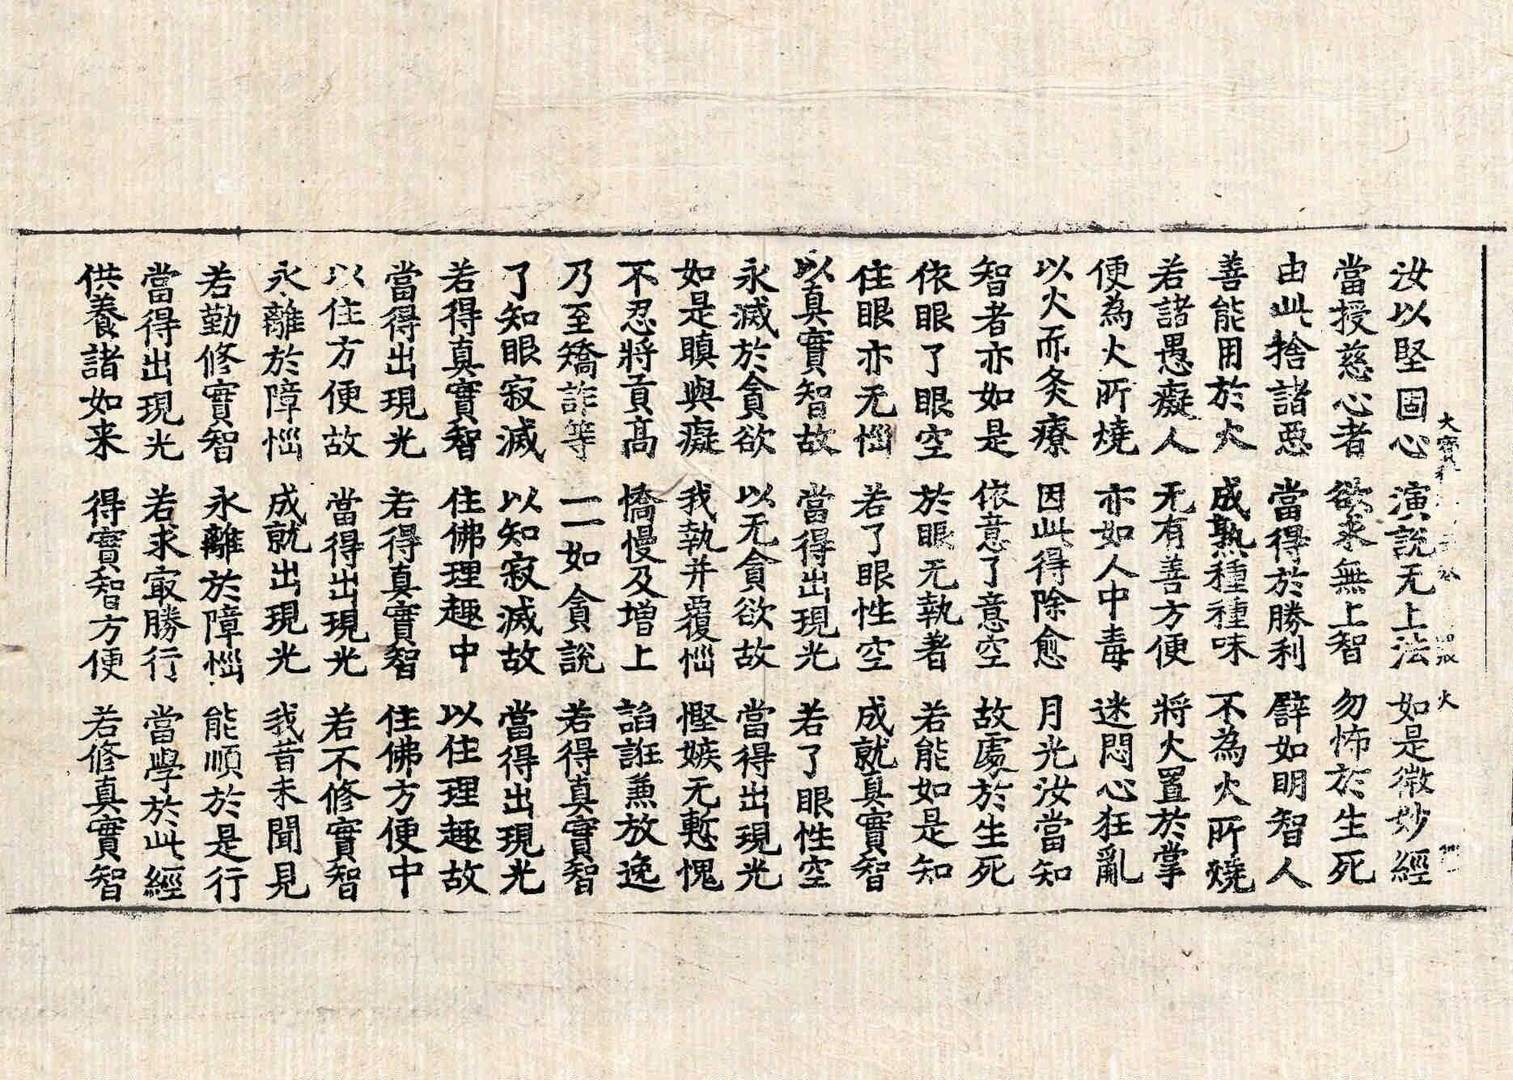 汝以堅固心　演說无上法　如是微妙經
當授慈心者　欲求無上智　勿怖於生死
由此捨諸惡　當得於勝利　譬如明智人
善能用於火　成熟種種味　不為火所燒
若諸愚癡人　无有善方便　將火置於掌
便為火所燒　亦如人中毒　迷悶心狂亂
以火而灸療　因此得除愈　月光汝當知
智者亦如是　依意了意空　故處於生死
依眼了眼空　於眼无執著　若能如是知
住眼亦无惱　若了眼性空　成就真實智
以真實智故　當得出現光　若了眼性空
永滅於貪欲　以无貪欲故　當得出現光
如是瞋與癡　我執并覆惱　慳嫉无慙愧
不忍將貢高　憍慢及增上　諂誑兼放逸
乃至矯詐等　一一如貪說　若得真實智
了知眼寂滅　以知寂滅故　當得出現光
若得真實智　住佛理趣中　以住理趣故
當得出現光　若得真實智　住佛方便中
以住方便故　當得出現光　若不修實智
永離於障惱　成就出現光　我昔未聞見
若勤修實智　永離於障惱　能順於是行
當得出現光　若求㝡勝行　當學於此經
供養諸如来　得實智方便　若修真實智
大寶
火